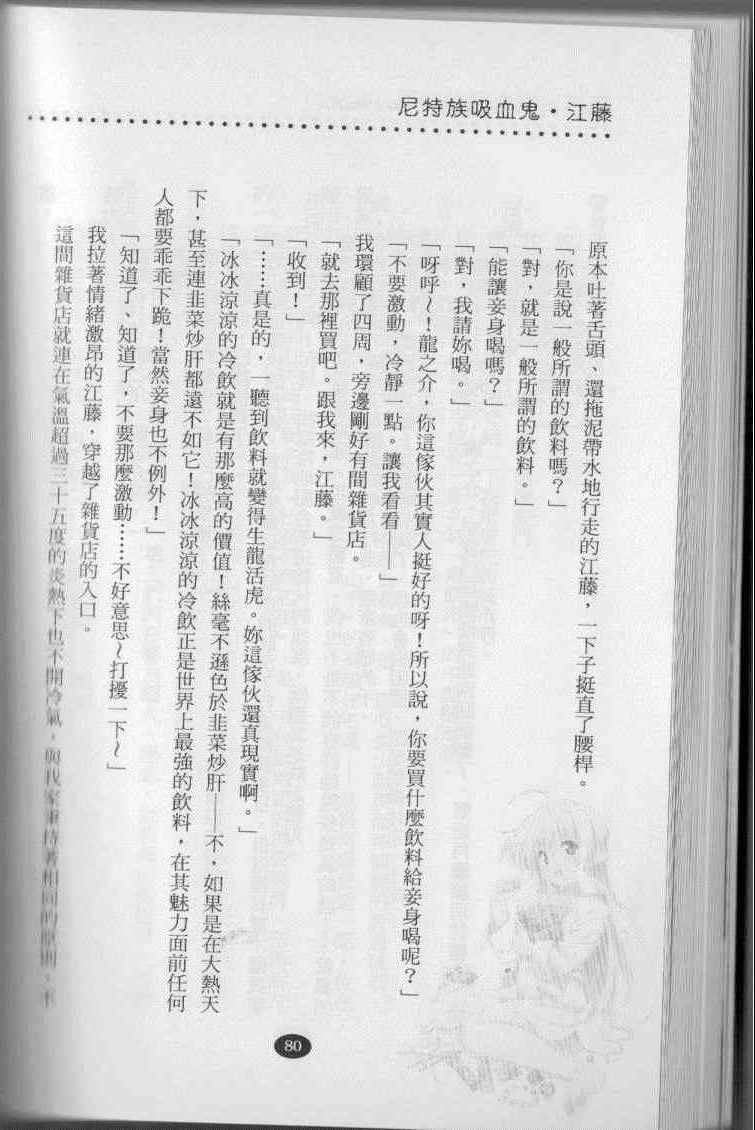 尼特族吸血鬼・江藤
原本吐著舌頭、還拖泥帶水地行走的江藤，一下子挺直了腰桿。
「你是說一般所謂的飲料嗎？」
「對，就是一般所謂的飲料。」
「能讓妾身喝嗎？」
「對，我請妳喝。」
「呀呼～！龍之介，你這傢伙其實人挺好的呀！所以說，你要買什麼飲料給妾身喝呢？」
「不要激動，冷靜一點。讓我看看——」
我環顧了四周，旁邊剛好有間雜貨店。
「就去那裡買吧。跟我來，江藤。」
「收到！」
「……真是的，一聽到飲料就變得生龍活虎。妳這傢伙還真現實啊。」
「冰冰涼涼的冷飲就是有那麼高的價值！絲毫不遜色於韭菜炒肝——不，如果是在大熱天
下，甚至連韭菜炒肝都遠不如它！冰冰涼涼的冷飲正是世界上最強的飲料，在其魅力面前任何
人都要乖乖下跪！當然妾身也不例外！」
「知道了、知道了，不要那麼激動……不好意思～打擾一下～」
我拉著情緒激昂的江藤，穿越了雜貨店的入口。
這間雜貨店就連在氣溫超過三十五度的炎熱下也不開冷氣，與我家秉持著相同的原則。不
80